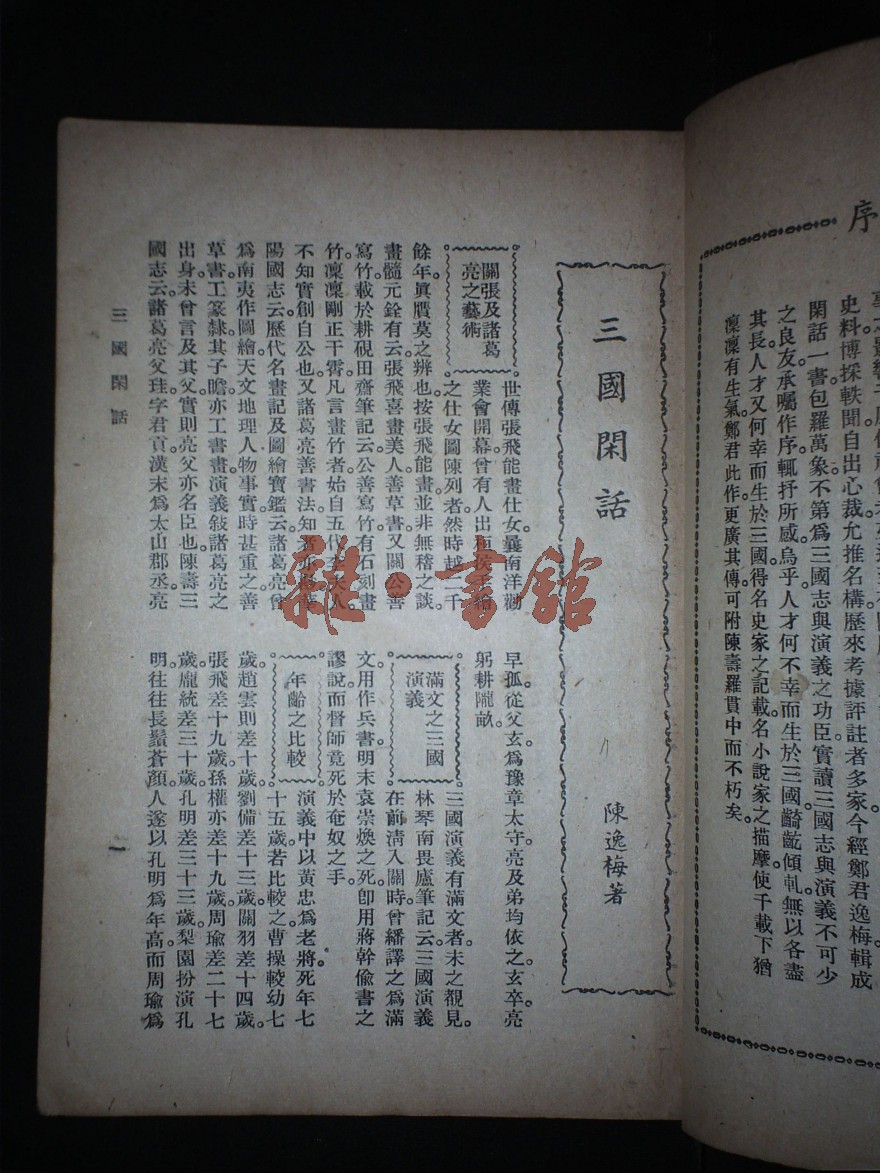 序
史料博採軼聞自出心裁尤推名構歷來考據評註者多家今經鄭君逸梅輯成
閑話一書包羅萬象不第爲三國志與演義之功臣實讀三國志與演義不可少
之良友承囑作序輒抒所感烏乎人才何不幸而生於三國齮齕傾軋無以各盡
其長人才又何幸而生於三國得名史家之記載名小說家之描摩使千載下猶
凜凜有生氣鄭君此作更廣其傳可附陳壽羅貫中而不朽矣。
三國閑話
陳逸梅著
關張及諸葛
亮之藝術
世傳張飛能畫仕女曩南洋勸
業會開幕曾有人出
之仕女圖陳列者然時越二千
餘年眞贋莫之辨也。按張飛能畫並非無稽之談。
畫髓元銓有云張飛喜畫美人善草書又關公善
寫竹載於耕硯田齋筆記云公善寫竹有石刻畫
竹凜凜剛正干霄凡言畫竹者始自五代李夫人
不知實創自公也。又諸葛亮善書法知者
陽國志云歷代名畫記及圖繪寶鑑云諸葛亮曾
爲南夷作圖繪天文地理人物事實時甚重之善
草書。工篆隸其子瞻亦工書畫。演義敍諸葛亮之
出身未曾言及其父。實則亮父亦名臣也。陳壽三
國志云諸葛亮父珪字君貢漢末爲太山郡丞亮
早孤從父玄爲豫章太守。亮及弟均依之。玄卒。亮
躬耕隴畝。
滿文之三國
演義
三國演義有滿文者。未之覩見。
林琴南畏廬筆記云三國演義
在前淸入關時曾繙譯之爲滿
文。用作兵書。明末袁崇煥之死卽用蔣幹偷書之
謬說而督師竟死於奄奴之手。
年齡之比較
演義中以黃忠爲老將。死年七
十五歲若比較之。曹操較幼七
歲。趙雲則差十歲。劉備差十三歲。關羽差十四歲。
張飛差十九歲。孫權亦差十九歲。周瑜差二十七
歲。龐統差三十歲。孔明差三十三歲。梨園扮演孔
明往往長鬚蒼顏人遂以孔明爲年高而周瑜爲
三國閑話
一
雜·書館